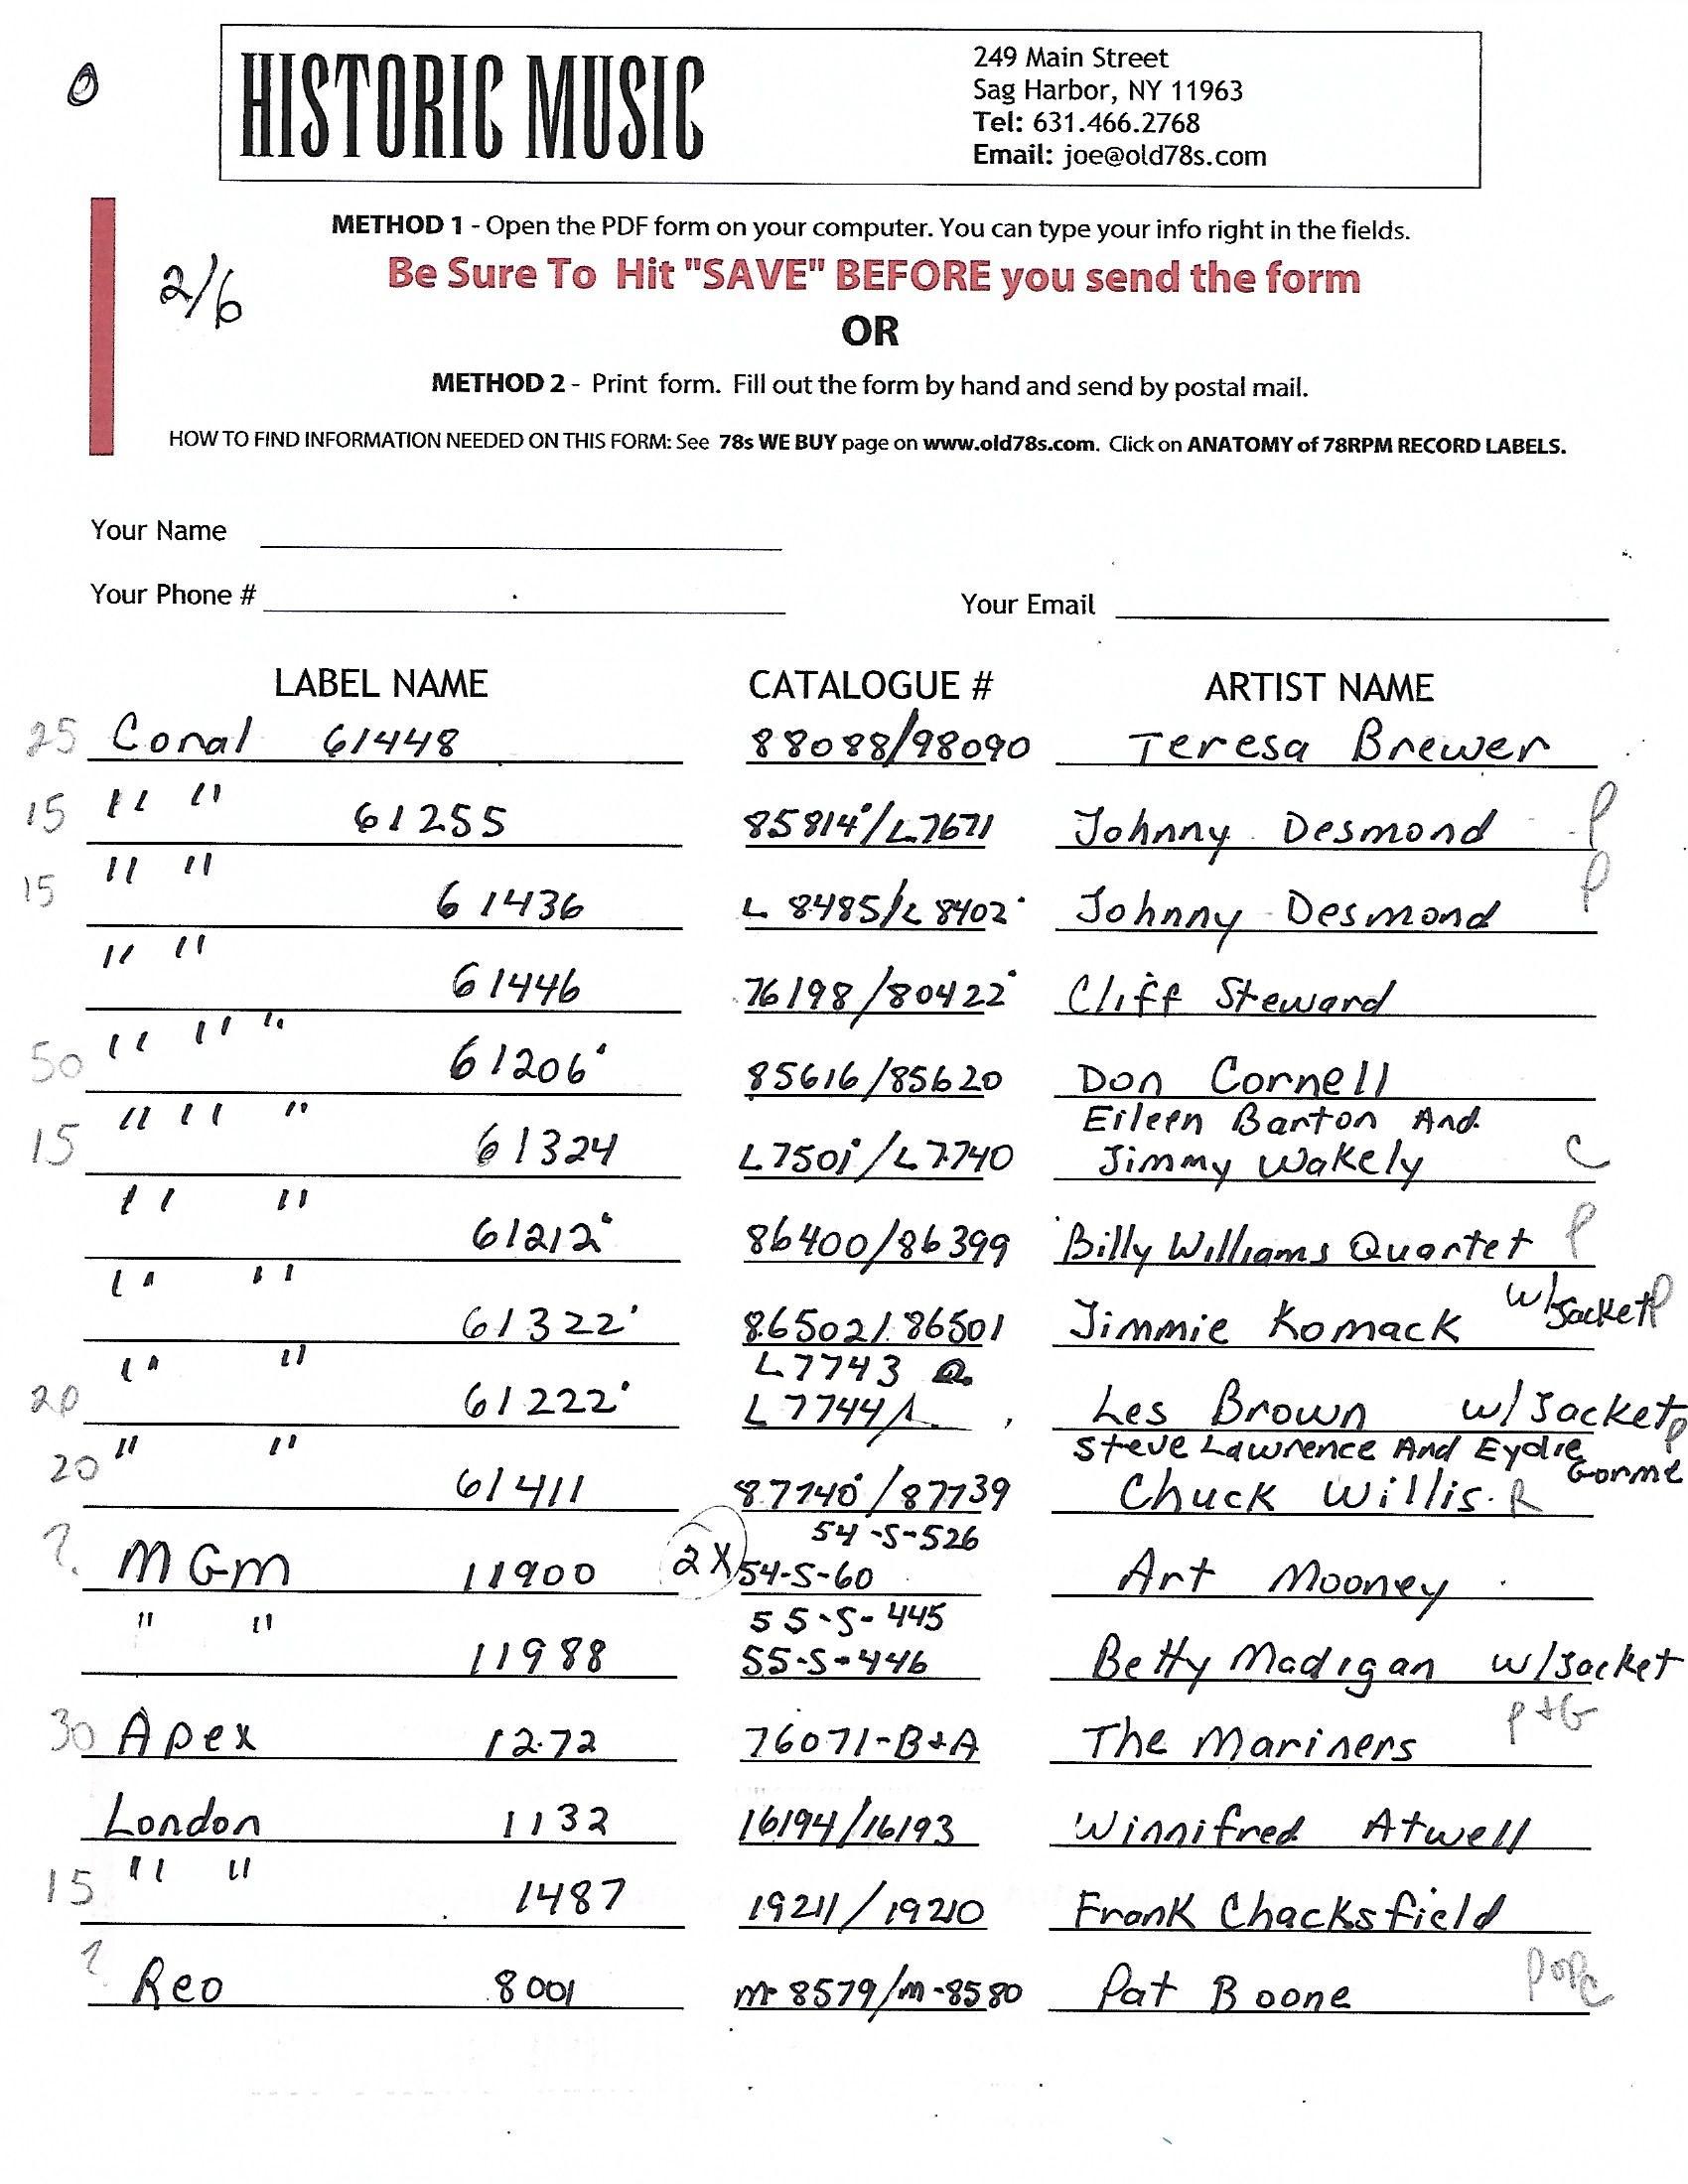 HISTORIC MUSIC
249 Main Street
Sag Harbor, NY 11963
Tel: 631.466.2768
Email: joe@old78s.com
METHOD 1 - Open the PDF form on your computer. You can type your info right in the fields.
2/6
Be Sure To Hit "SAVE" BEFORE you send the form
OR
METHOD 2 - Print form. Fill out the form by hand and send by postal mail.
HOW TO FIND INFORMATION NEEDED ON THIS FORM: See 78s WE BUY page on www.old78s.com. Click on ANATOMY of 78RPM RECORD LABELS.
Your Name
Your Phone #
Your Email
LABEL NAME CATALOGUE # ARTIST NAME
25 Coral 61448 88088/98090 Teresa Brewer
15 " " 61255 85814/L7671 Johnny Desmond P
15 " " 61436 L 8485/L 8402 Johnny Desmond P
" " 61446 76198/80422 Cliff Steward
50 " " " 61206 85616/85620 Don Cornell
Eileen Barton And
15 " " " 61324 L7501/L7740 Jimmy Wakely C
" " 61212 86400/86399 Billy Williams Quartet P
" " 61322 86502/86501 Jimmie Komack w/Jacket P
L7743
20 " " 61222 L7744/ Les Brown w/Jacket P
Steve Lawrence And Eydie Gorme
20 " " 61411 87740/87739 Chuck Willis R
54-S-526
? MGM 11900 2X 54-S-60 Art Mooney
55-S-445
" " 11988 55-S-446 Betty Madigan w/Jacket
P+G
30 Apex 1272 76071-B+A The Mariners
London 1132 16194/16193 Winnifred Atwell
15 " " 1487 19211/19210 Frank Chacksfield
? Reo 8001 M-8579/M-8580 Pat Boone P or C